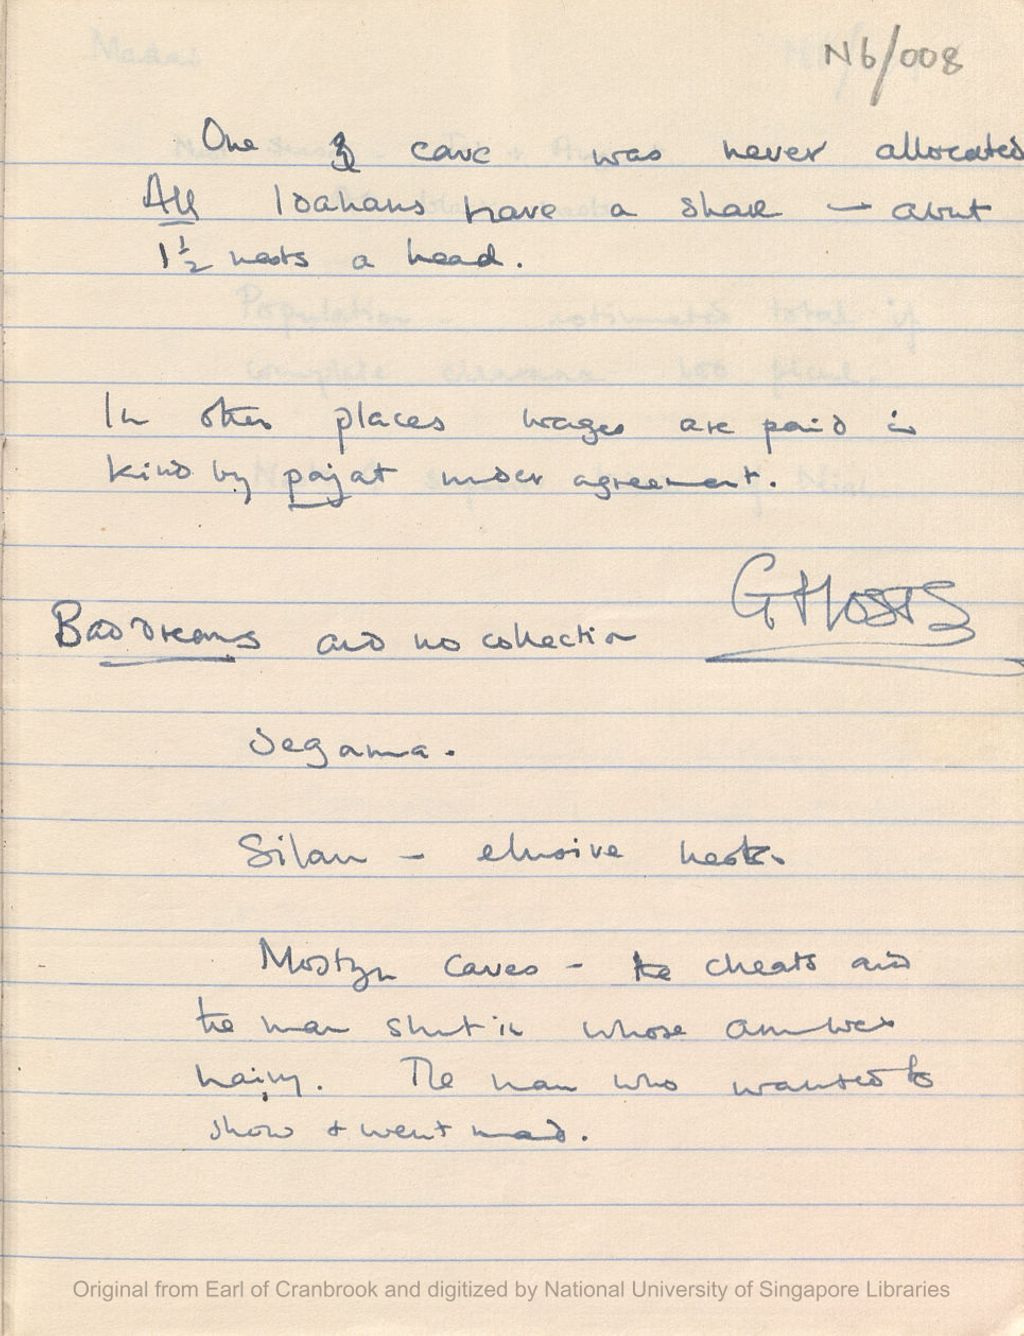 N6/008
One cave was never allocated
All Idahans have a share – about
1½ nests a head.
In other places wages are paid in
kind by pajat under agreement.
GHOSTS
Bad dreams and no collection
Segama.
Silau – elusive nests.
Mostyn Caves – the cheats and
the man shut in whose arm was
hairy. The man who wanted to
show & went mad.
Original from Earl of Cranbrook and digitized by National University of Singapore Libraries